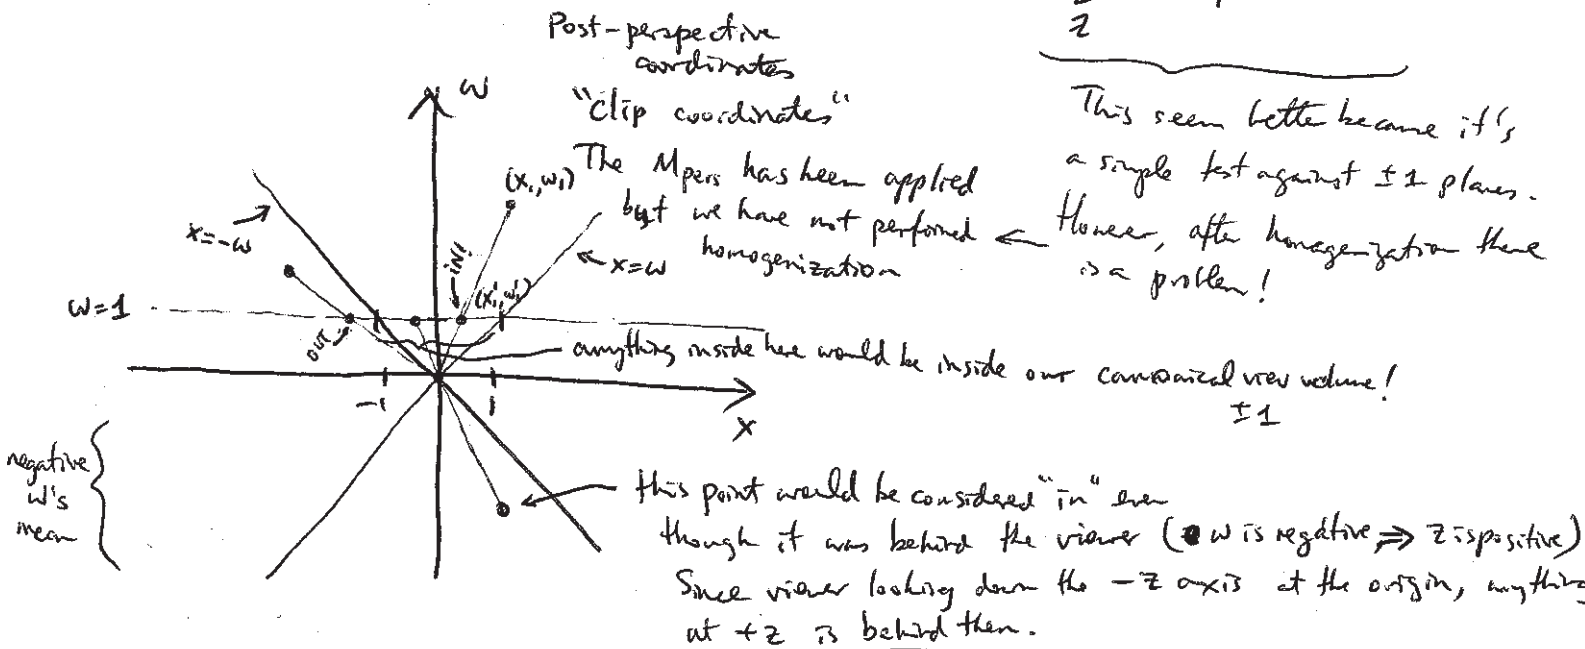 Post-perspective
coordinates
"Clip coordinates"
The Mpers has been applied
but we have not performed
homogenization
z
This seem better because it's
a simple test against ±1 planes.
However, after homogenization there
is a problem!
w
(x1, w1)
x=-w
x=w
IN!
(x1', w1')
w=1
OUT
anything inside here would be inside our cannonical view volume!
±1
-1
1
x
negative
w's
mean
this point would be considered "in" even
though it was behind the viewer (w is negative ⇒ z is positive)
Since viewer looking down the -z axis at the origin, anything
at +z is behind them.